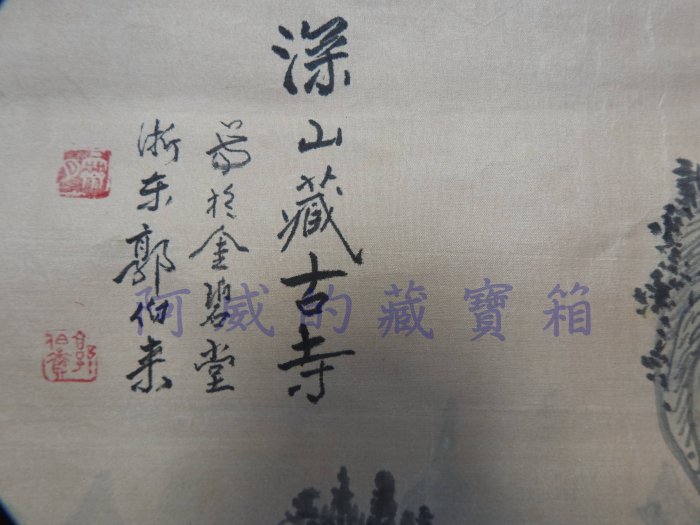 深山藏古寺
寫於金碧堂
浙东郭伯来
阿威的藏寶箱